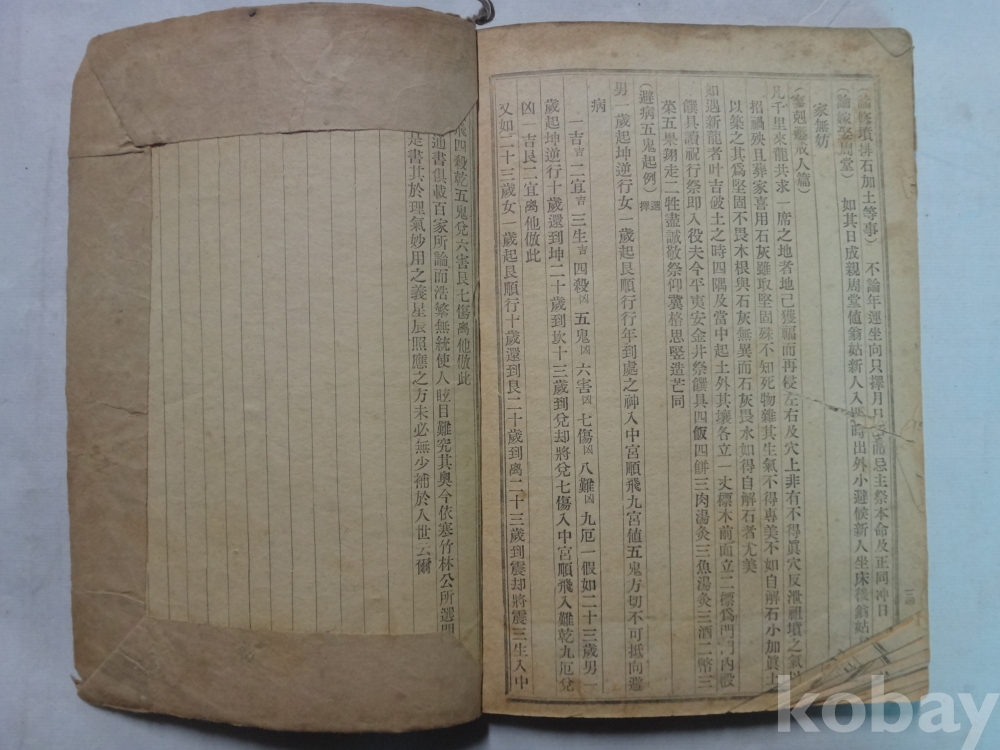 (論修墳排石加土等事) 不論年運坐向只擇月日 忌主祭本命及正同冲日
(論嫁娶周堂) 如其日成親周堂値翁姑新人入 時出外小避候新人坐床後翁姑
家無妨
凡千里來龍共求一席之地者地已獲福而再侵左右及穴上非有不得眞穴反泄祖墳之氣
招禍殃且葬家喜用石灰雖取堅固殊不知死物雜其生氣不得專美不如自解石小加眞土
以築之其爲堅固不畏木根與石灰無異而石灰畏水如得自解石者尤美
如遇新龍者叶吉破土之時四隅及當中起土外其壤各立一丈標木前面立二標爲門門內設
饌具讀祝行祭即入役夫令平夷安金井祭饌具四飯四餠三肉湯灸三魚湯灸三酒二幣三
菜五果翊走二牲盡誠敬祭仰冀格思竪造芒同
(避病五鬼起例)
男一歲起坤逆行女一歲起艮順行行年到處之神入中宮順飛九宮値五鬼方切不可抵向避
病
一吉吉 二宜吉 三生吉 四殺凶 五鬼凶 六害凶 七傷凶 八難凶 九厄一假如二十三歲男一
歲起坤逆行十歲還到坤二十歲到坎十三歲到兌却將兌七傷入中宮順飛入難乾九厄兌
凶一吉艮二宜离他倣此
又如二十三歲女一歲起艮順行十歲還到艮二十歲到离二十三歲到震却將震三生入中
飛四殺乾五鬼兌六害艮七傷离他倣此
通書俱載百家所論而浩繁無統使人眩目難究其奥今依塞竹林公所選
是書其於理氣妙用之義星辰照應之方未必無少補於人世云爾
kobay